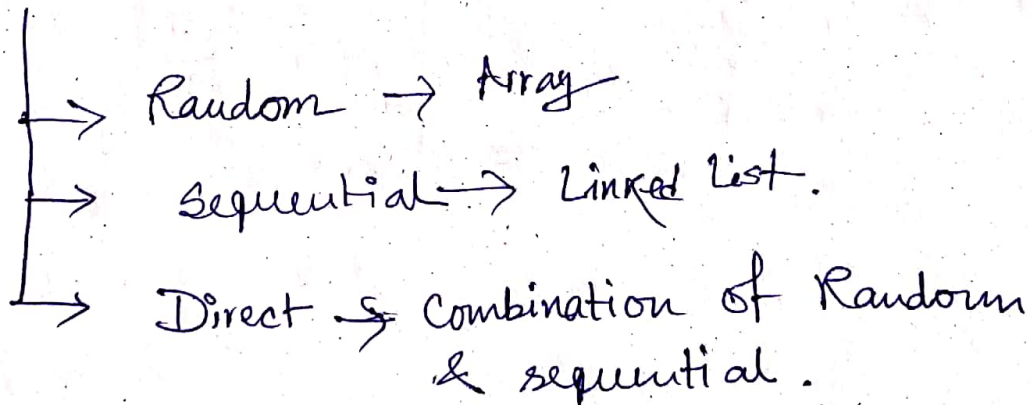 → Random → Array
→ Sequential → Linked List.
→ Direct → Combination of Random
& sequential.